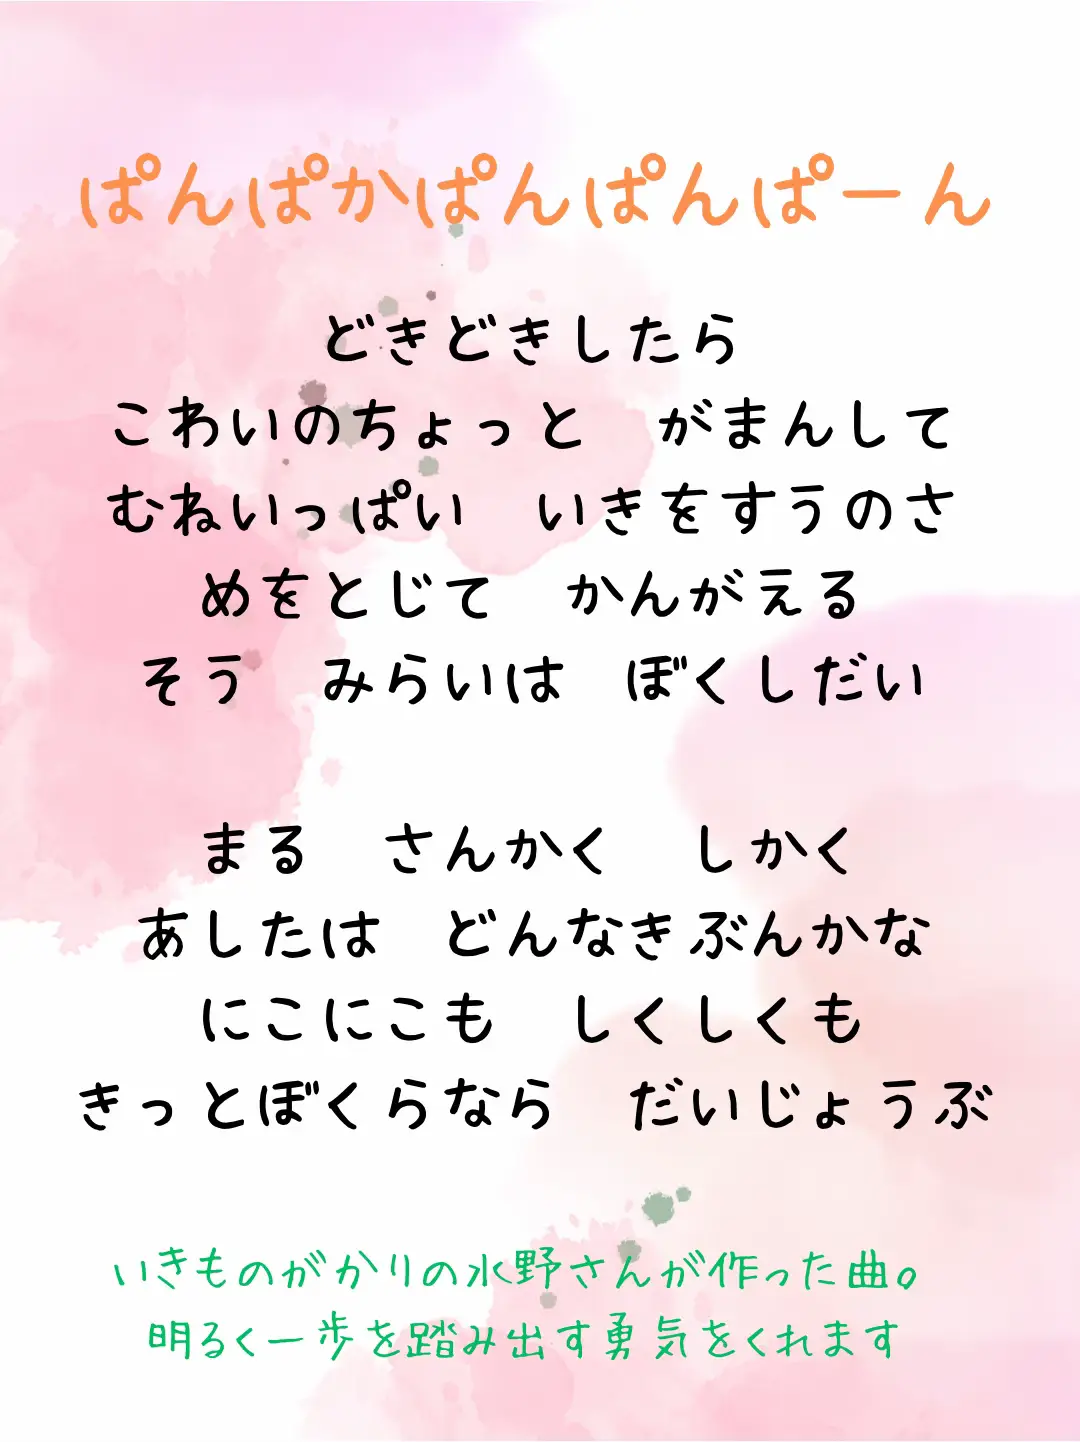 ぱんぱかぱんぱんぱーん
どきどきしたら
こわいのちょっと　がまんして
むねいっぱい　いきをすうのさ
めをとじて　かんがえる
そう　みらいは　ぼくしだい
まる　さんかく　しかく
あしたは　どんなきぶんかな
にこにこも　しくしくも
きっとぼくらなら　だいじょうぶ
いきものがかりの水野さんが作った曲。
明るく一歩を踏み出す勇気をくれます